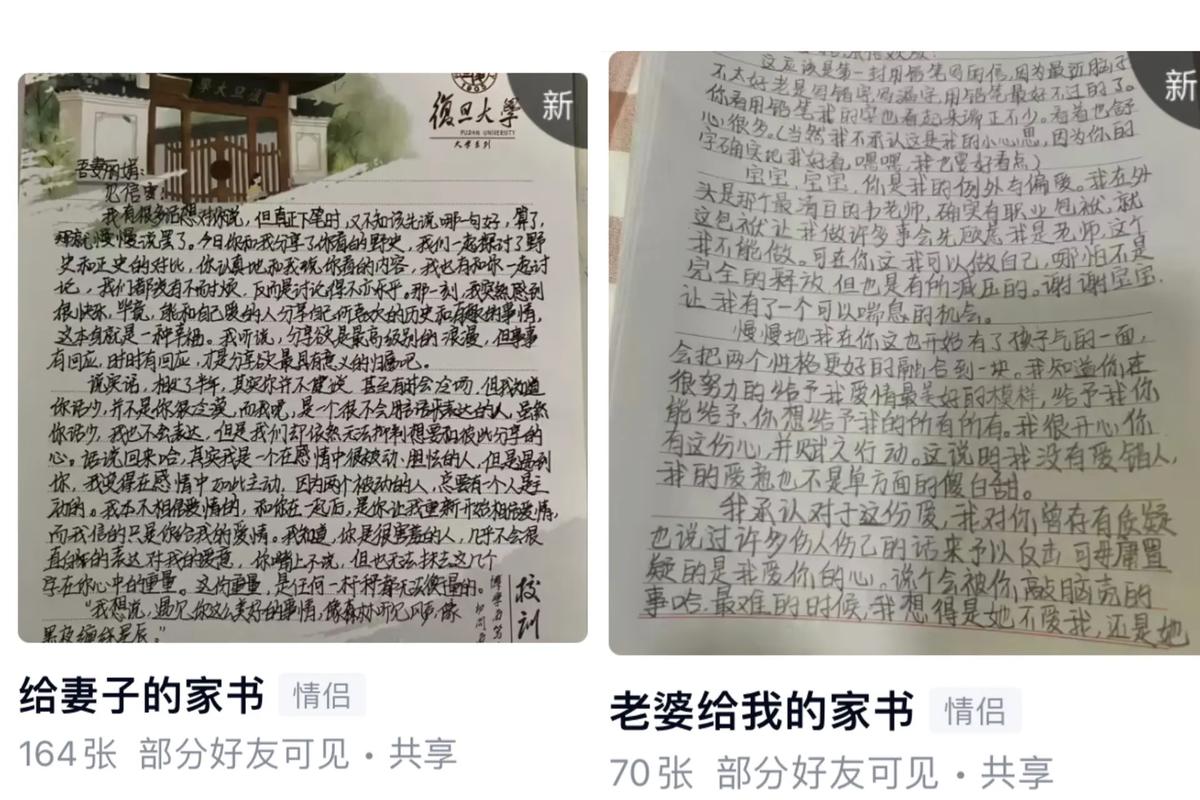 學大旦復
1905
復旦大學
FUDAN UNIVERSITY
大学系列
新
吾妻丽娟:
见信安!
我有很多话想对你说，但真正下笔时，又不知该先说哪一句好，算了，
那就慢慢说罢了。今日你和我分享了你看的野史，我们一起探讨了野
史和正史的对比，你认真地和我说你看的内容，我也有和你一起讨
论，我们都没有不耐烦，反而是讨论得不亦乐乎。那一刻，我突然感到
很快乐，毕竟，能和自己爱的人分享自己所喜欢的历史和有趣的事情，
这本身就是一种幸福。我听说，分享欲是最高级别的浪漫，但事事
有回应，时时有回应，才是分享欲最具有意义的归宿吧。
说实话，相处了半年，其实你并不健谈，甚至有时会冷场，但我知道
你话少，并不是你很冷漠，而我呢，是一个很不会用话语表达的人，虽然
你话少，我也不会表达，但是我们却依然无法抑制想要和彼此分享的
心。话说回来哈，其实我是一个在感情中很被动、胆怯的人，但是遇到
你，我变得在感情中如此主动，因为两个被动的人，总要有一个人是主
动的。我本不相信爱情的，和你在一起后，是你让我重新开始相信爱情，
而我信的只是你给我的爱情。我知道，你是很害羞的人，几乎不会很
直白的表达对我的爱意，你嘴上不说，但也无法抹去这几个
字在你心中的重量。这份重量，是任何一杆秤都无法衡量的。
“我想说，遇见你这么美好的事情，像森林听见风声，像
黑夜缠绵星辰。”
校训
博学而笃
切问
给妻子的家书
情侣
164张 部分好友可见・共享
新
这应该是第一封用铅笔写的信，因为最近脑子
不太好老是写错字写漏字，用铅笔最好不过的了。
你看用铅笔我的字也看起来端正不少。看着也舒
心很多。(当然我不承认这是我的小心思，因为你的
字确实比我好看，嘿嘿，我也要好看点)
宝宝，宝宝，你是我的例外与偏爱。我在外
头是那个最清白的书老师，确实有职业包袱，就
这包袱让我做许多事会先顾忌我是老师，这个
我不能做。可在你这我可以做自己，哪怕不是
完全的释放，但也是有所减压的。谢谢宝宝，
让我有了一个可以喘息的机会。
慢慢地我在你这也开始有了孩子气的一面，
会把两个性格更好的融合到一块。我知道你在
很努力的给予我爱情最美好的模样，给予我你
能给予、你想给予我的所有所有。我很开心，你
有这份心，并赋之行动。这说明我没有爱错人，
我的爱意也不是单方面的傻白甜。
我承认对于这份爱，我对你曾存有质疑
也说过许多伤人伤己的话来予以反击，可毋庸置
疑的是我爱你的心。说个会被你敲脑壳的
事哈，最难的时候，我想得是她不爱我，还是她
老婆给我的家书
情侣
70张 部分好友可见・共享